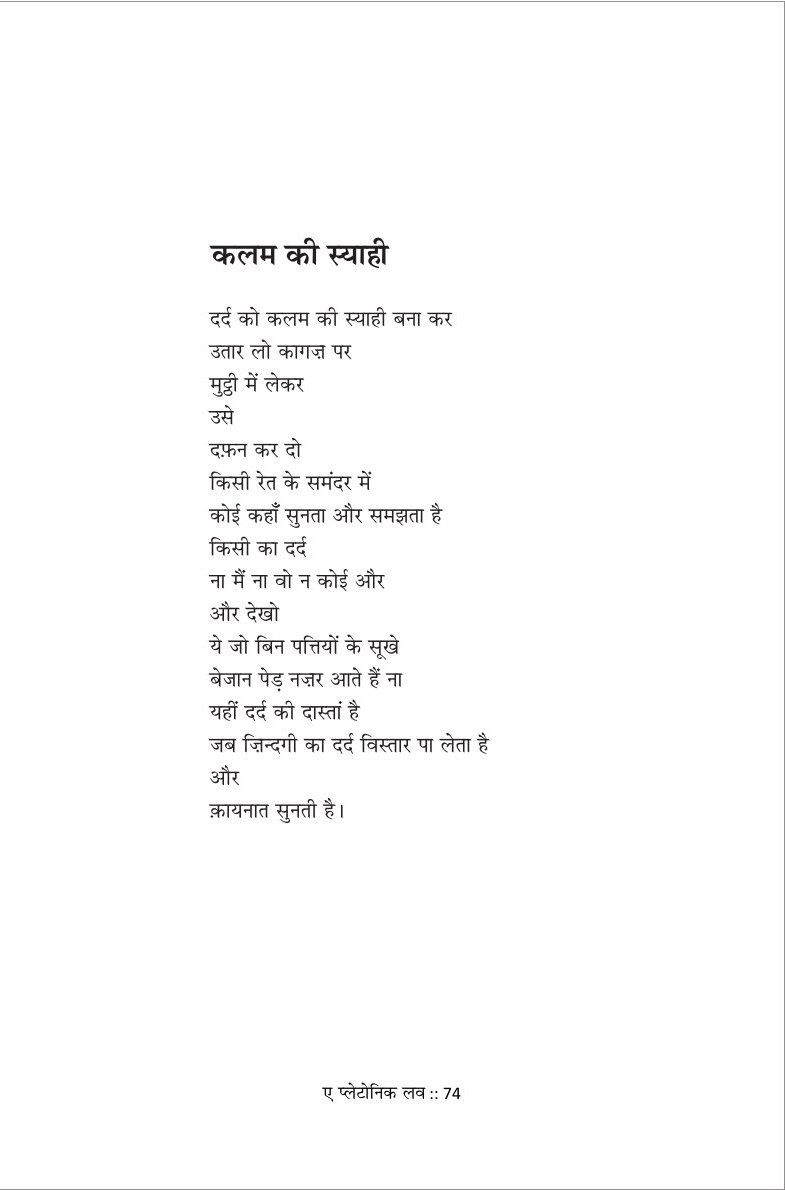 कलम की स्याही
दर्द को कलम की स्याही बना कर
उतार लो कागज़ पर
मुट्ठी में लेकर
उसे
दफ़न कर दो
किसी रेत के समंदर में
कोई कहाँ सुनता और समझता है
किसी का दर्द
ना मैं ना वो न कोई और
और देखो
ये जो बिन पत्तियों के सूखे
बेजान पेड़ नज़र आते हैं ना
यहीं दर्द की दास्तां है
जब ज़िन्दगी का दर्द विस्तार पा लेता है
और
क़ायनात सुनती है।
ए प्लेटोनिक लव :: 74